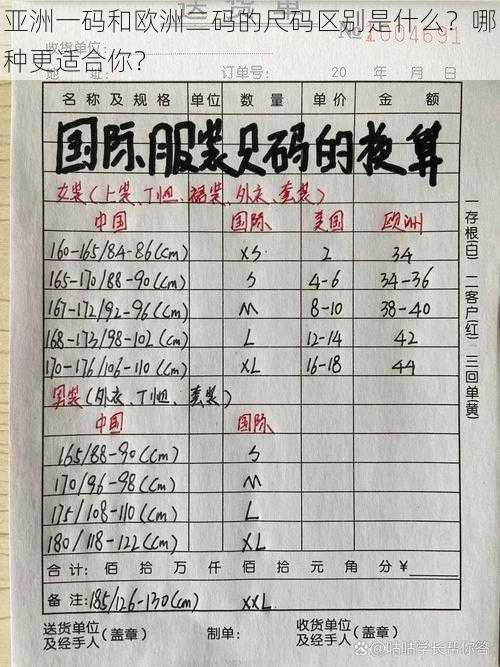 亚洲一码和欧洲二码的尺码区别是什么？哪
种更适合你？
送货单
收货单位： № 1004691
地址： 订单号： 20 年 月 日
名称及规格 单位 数量 单价 金额
国际服装尺码的换算
女装（上装、T恤、裙装、外衣、套装）
中国 国际 美国 欧洲
160-165/84-86(cm) XS 2 34
165-170/88-90(cm) S 4-6 34-36
167-172/92-96(cm) M 8-10 38-40
168-173/98-102(cm) L 12-14 42
170-176/106-110(cm) XL 16-18 44
男装（外衣、T恤、套装）
中国 国际
165/88-90(cm) S
170/96-98(cm) M
175/108-110(cm) L
180/118-122(cm) XL
合计： 佰 拾 万 仟 佰 拾 元 角 分 ¥
备注：185/126-130(cm) XXL
送货单位
及经手人（盖章） 制单： 收货单位
及经手人（盖章）
一存根(白) 二客户(红) 三回单(黄)
@咕咕学长帮你答